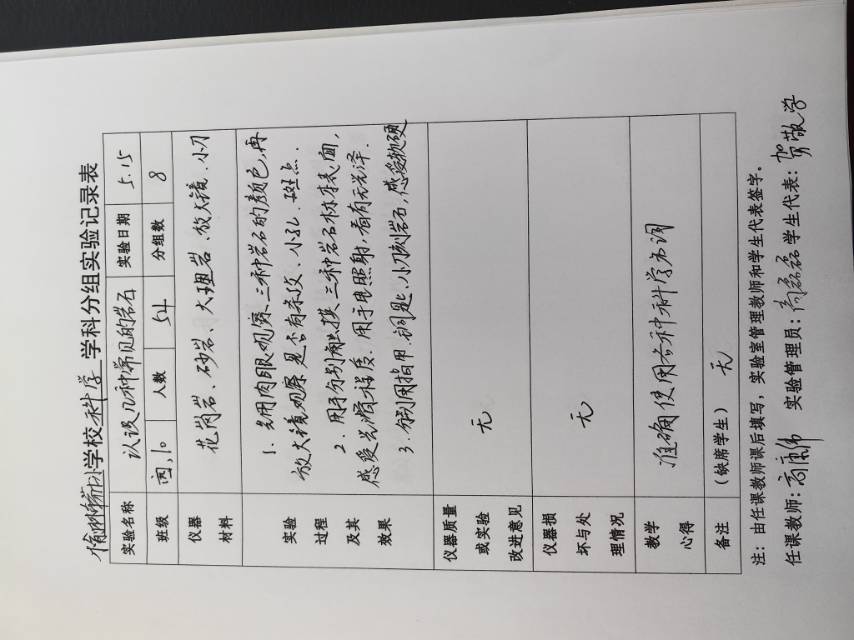 学校科学学科分组实验记录表
实验名称 认识几种常见的岩石 实验日期 5.15
班级 四,10 人数 54 分组数 8
仪器材料 花岗岩、砂岩、大理岩、放大镜、小刀
实验过程及其效果 1. 先用肉眼观察三种岩石的颜色,再
放大镜观察是否有条纹、小孔、斑点.
2. 用手分别触摸三种岩石标本表面,
感受光滑程度. 用手电照射,看有无光泽.
3. 分别用指甲、铜匙、小刀刻岩石,感受软硬
仪器质量或实验改进意见 无
仪器损坏与处理情况 无
教学心得 准确使用各种科学名词
备注 (缺席学生) 无
注:由任课教师课后填写,实验室管理教师和学生代表签字。
任课教师: 实验管理员: 学生代表: 贺敬学